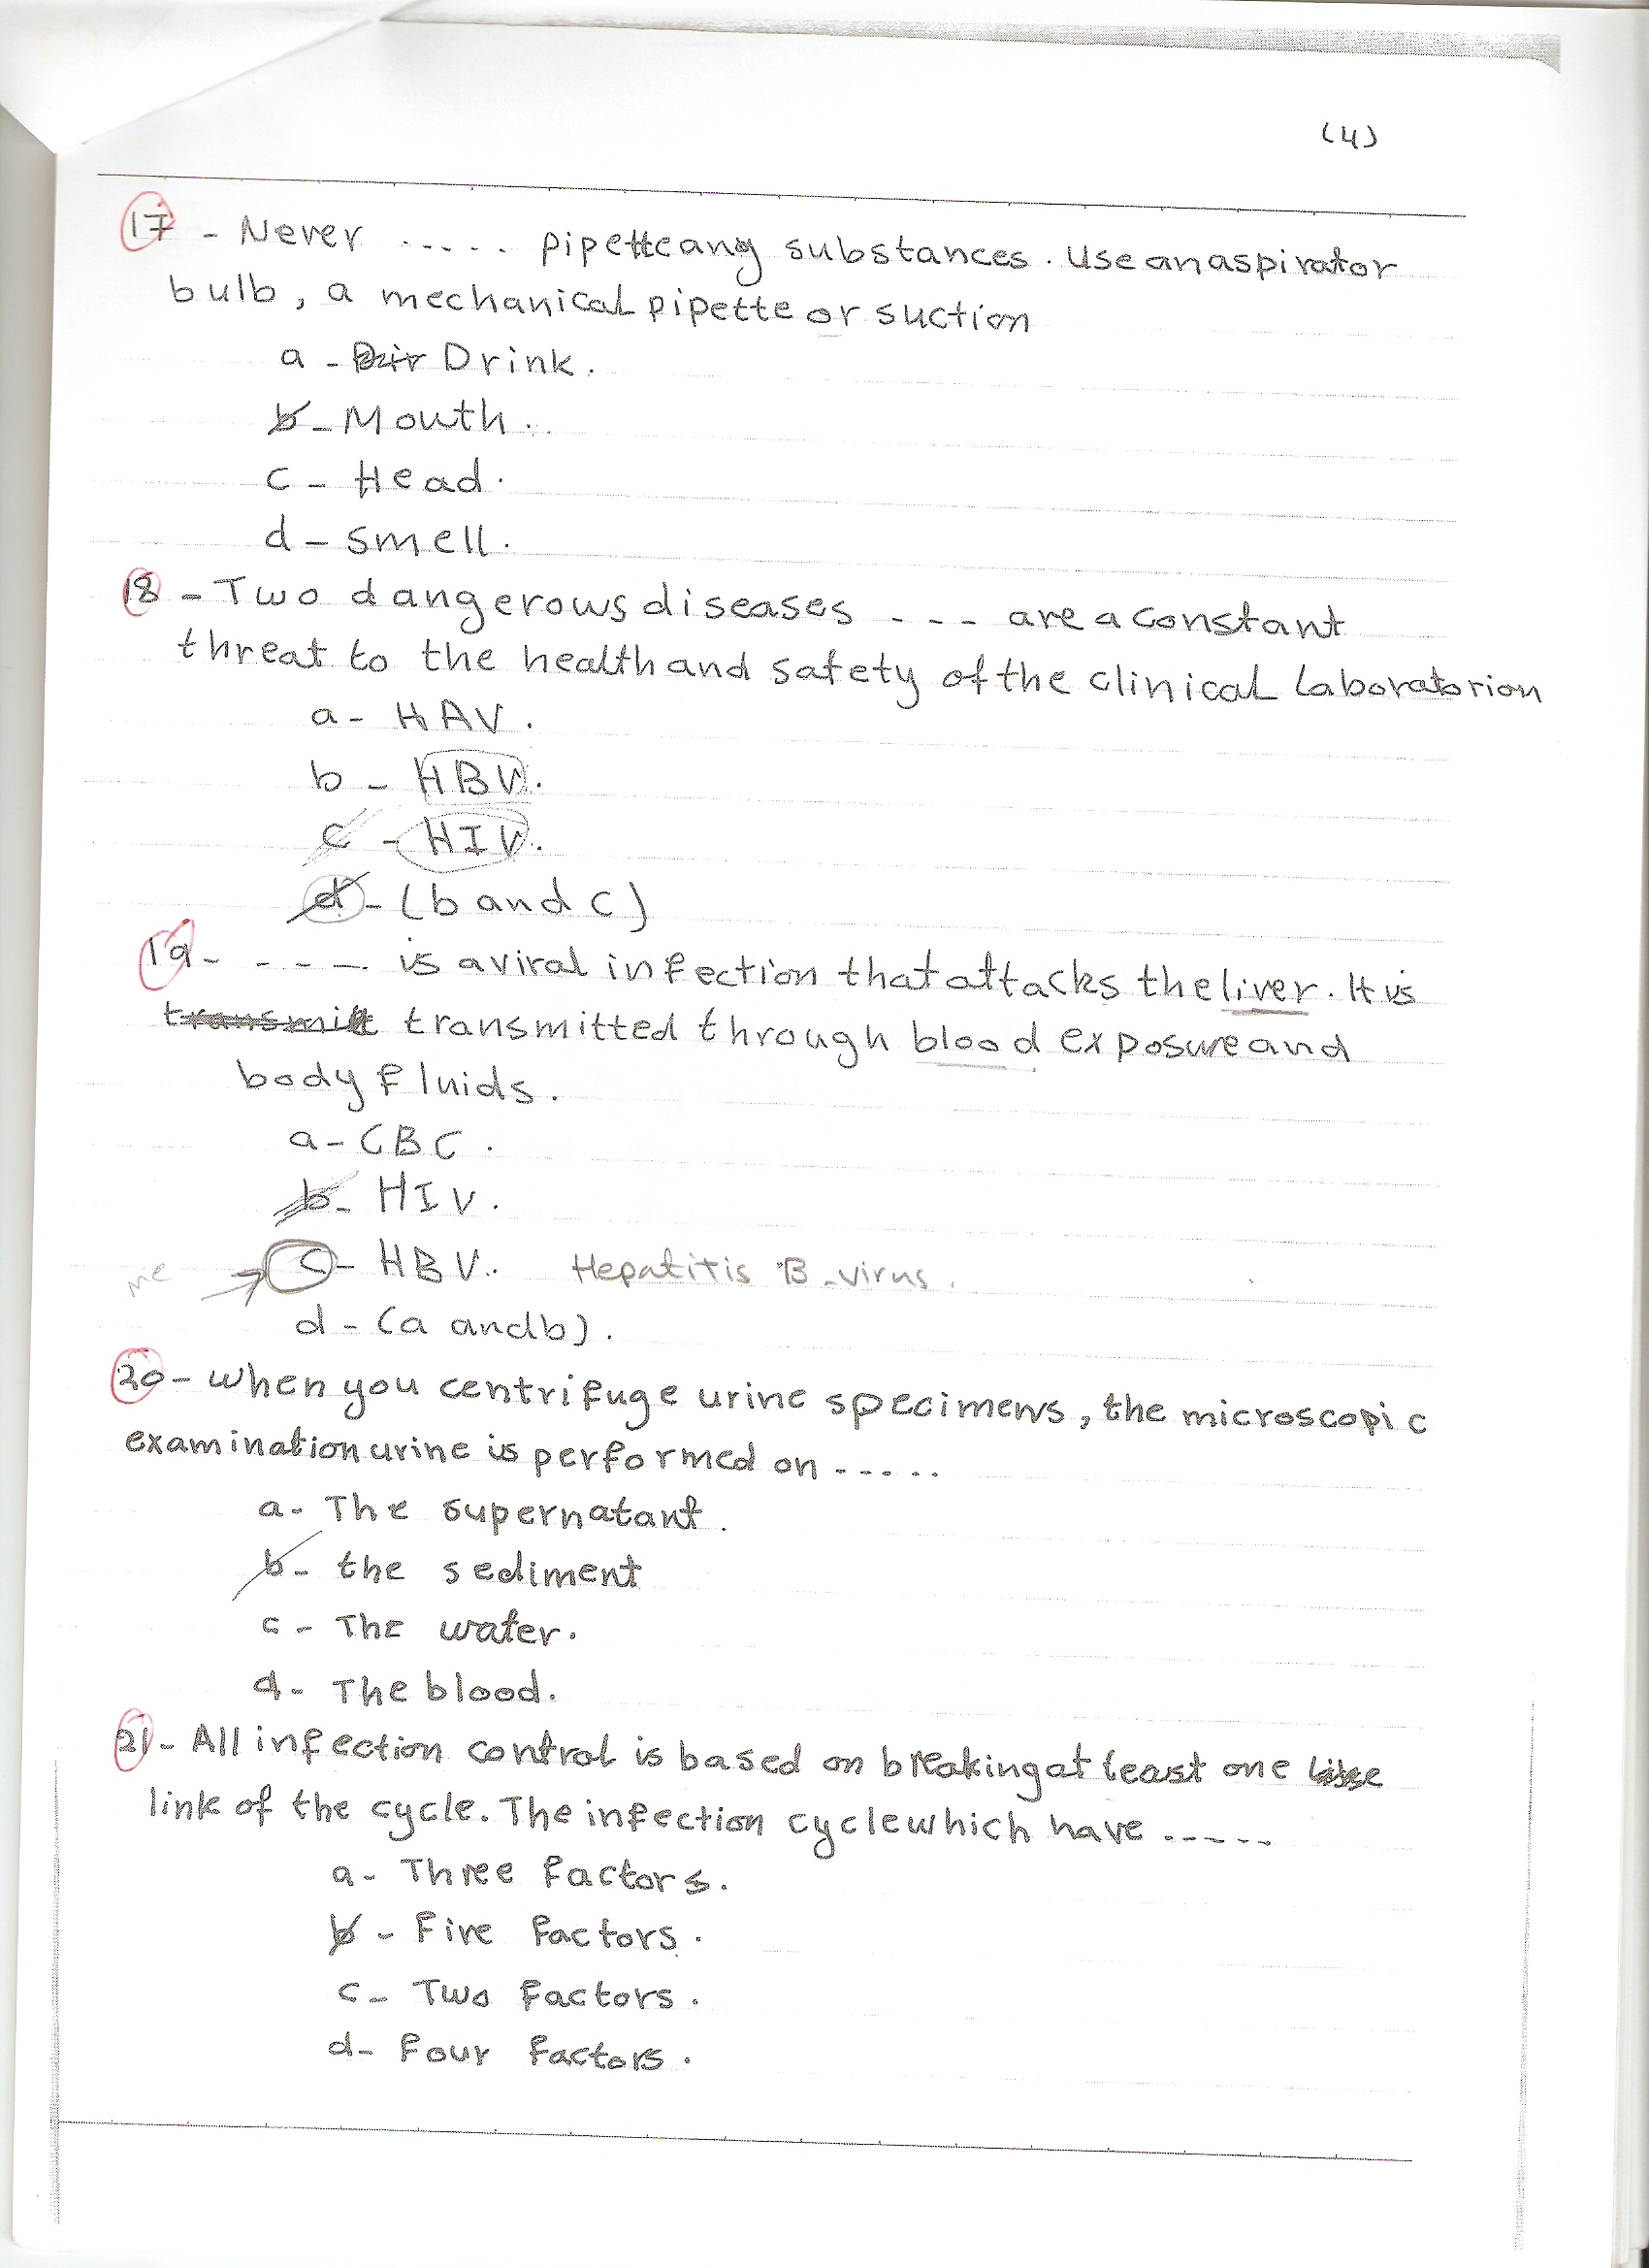 (4)
17 - Never ..... pipette any substances. Use an aspirator
bulb, a mechanical pipette or suction
a - Dir Drink.
b - Mouth.
c - Head.
d - smell.
18 - Two dangerous diseases --- are a constant
threat to the health and safety of the clinical laboratorion
a - HAV.
b - HBV.
c - HIV.
d - (b and c)
19 - ---- is a viral infection that attacks the liver. It is
transmit transmitted through blood exposure and
body fluids.
a - CBC.
b - HIV.
me c - HBV. Hepatitis B-virus.
d - (a and b).
20 - When you centrifuge urine specimens, the microscopic
examination urine is performed on .....
a - The supernatant.
b - the sediment
c - The water.
d - The blood.
21 - All infection control is based on breaking at least one
link of the cycle. The infection cycle which have .....
a - Three factors.
b - Five factors.
c - Two factors.
d - four factors.